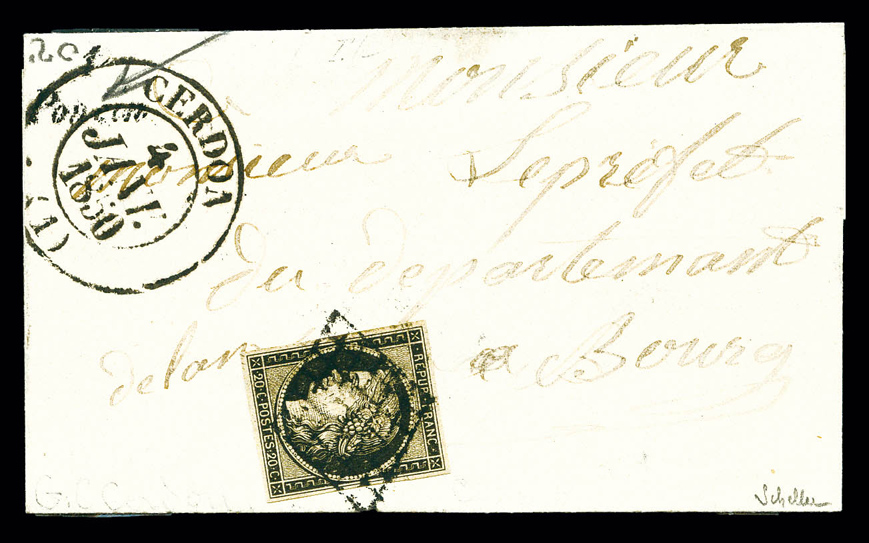 201
CERDON
4
JANV.
1850
(1)
Monsieur
Monsieur Le préfet
du departemant
de lain a Bourg
REPUB. FRANC.
20.C.POSTES.20.C
Scheller